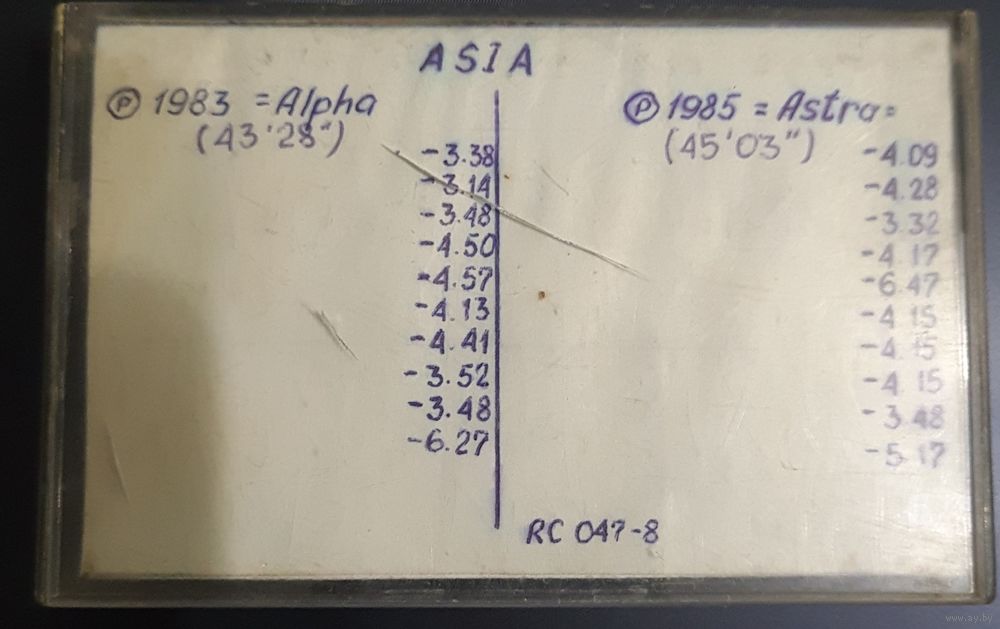 ASIA
Ⓟ 1983 = Alpha
(43'28")
-3.38
-3.14
-3.48
-4.50
-4.57
-4.13
-4.41
-3.52
-3.48
-6.27
Ⓟ 1985 = Astra =
(45'03")
-4.09
-4.28
-3.32
-4.17
-6.47
-4.15
-4.15
-4.15
-3.48
-5.17
RC 047-8
www.ay.by